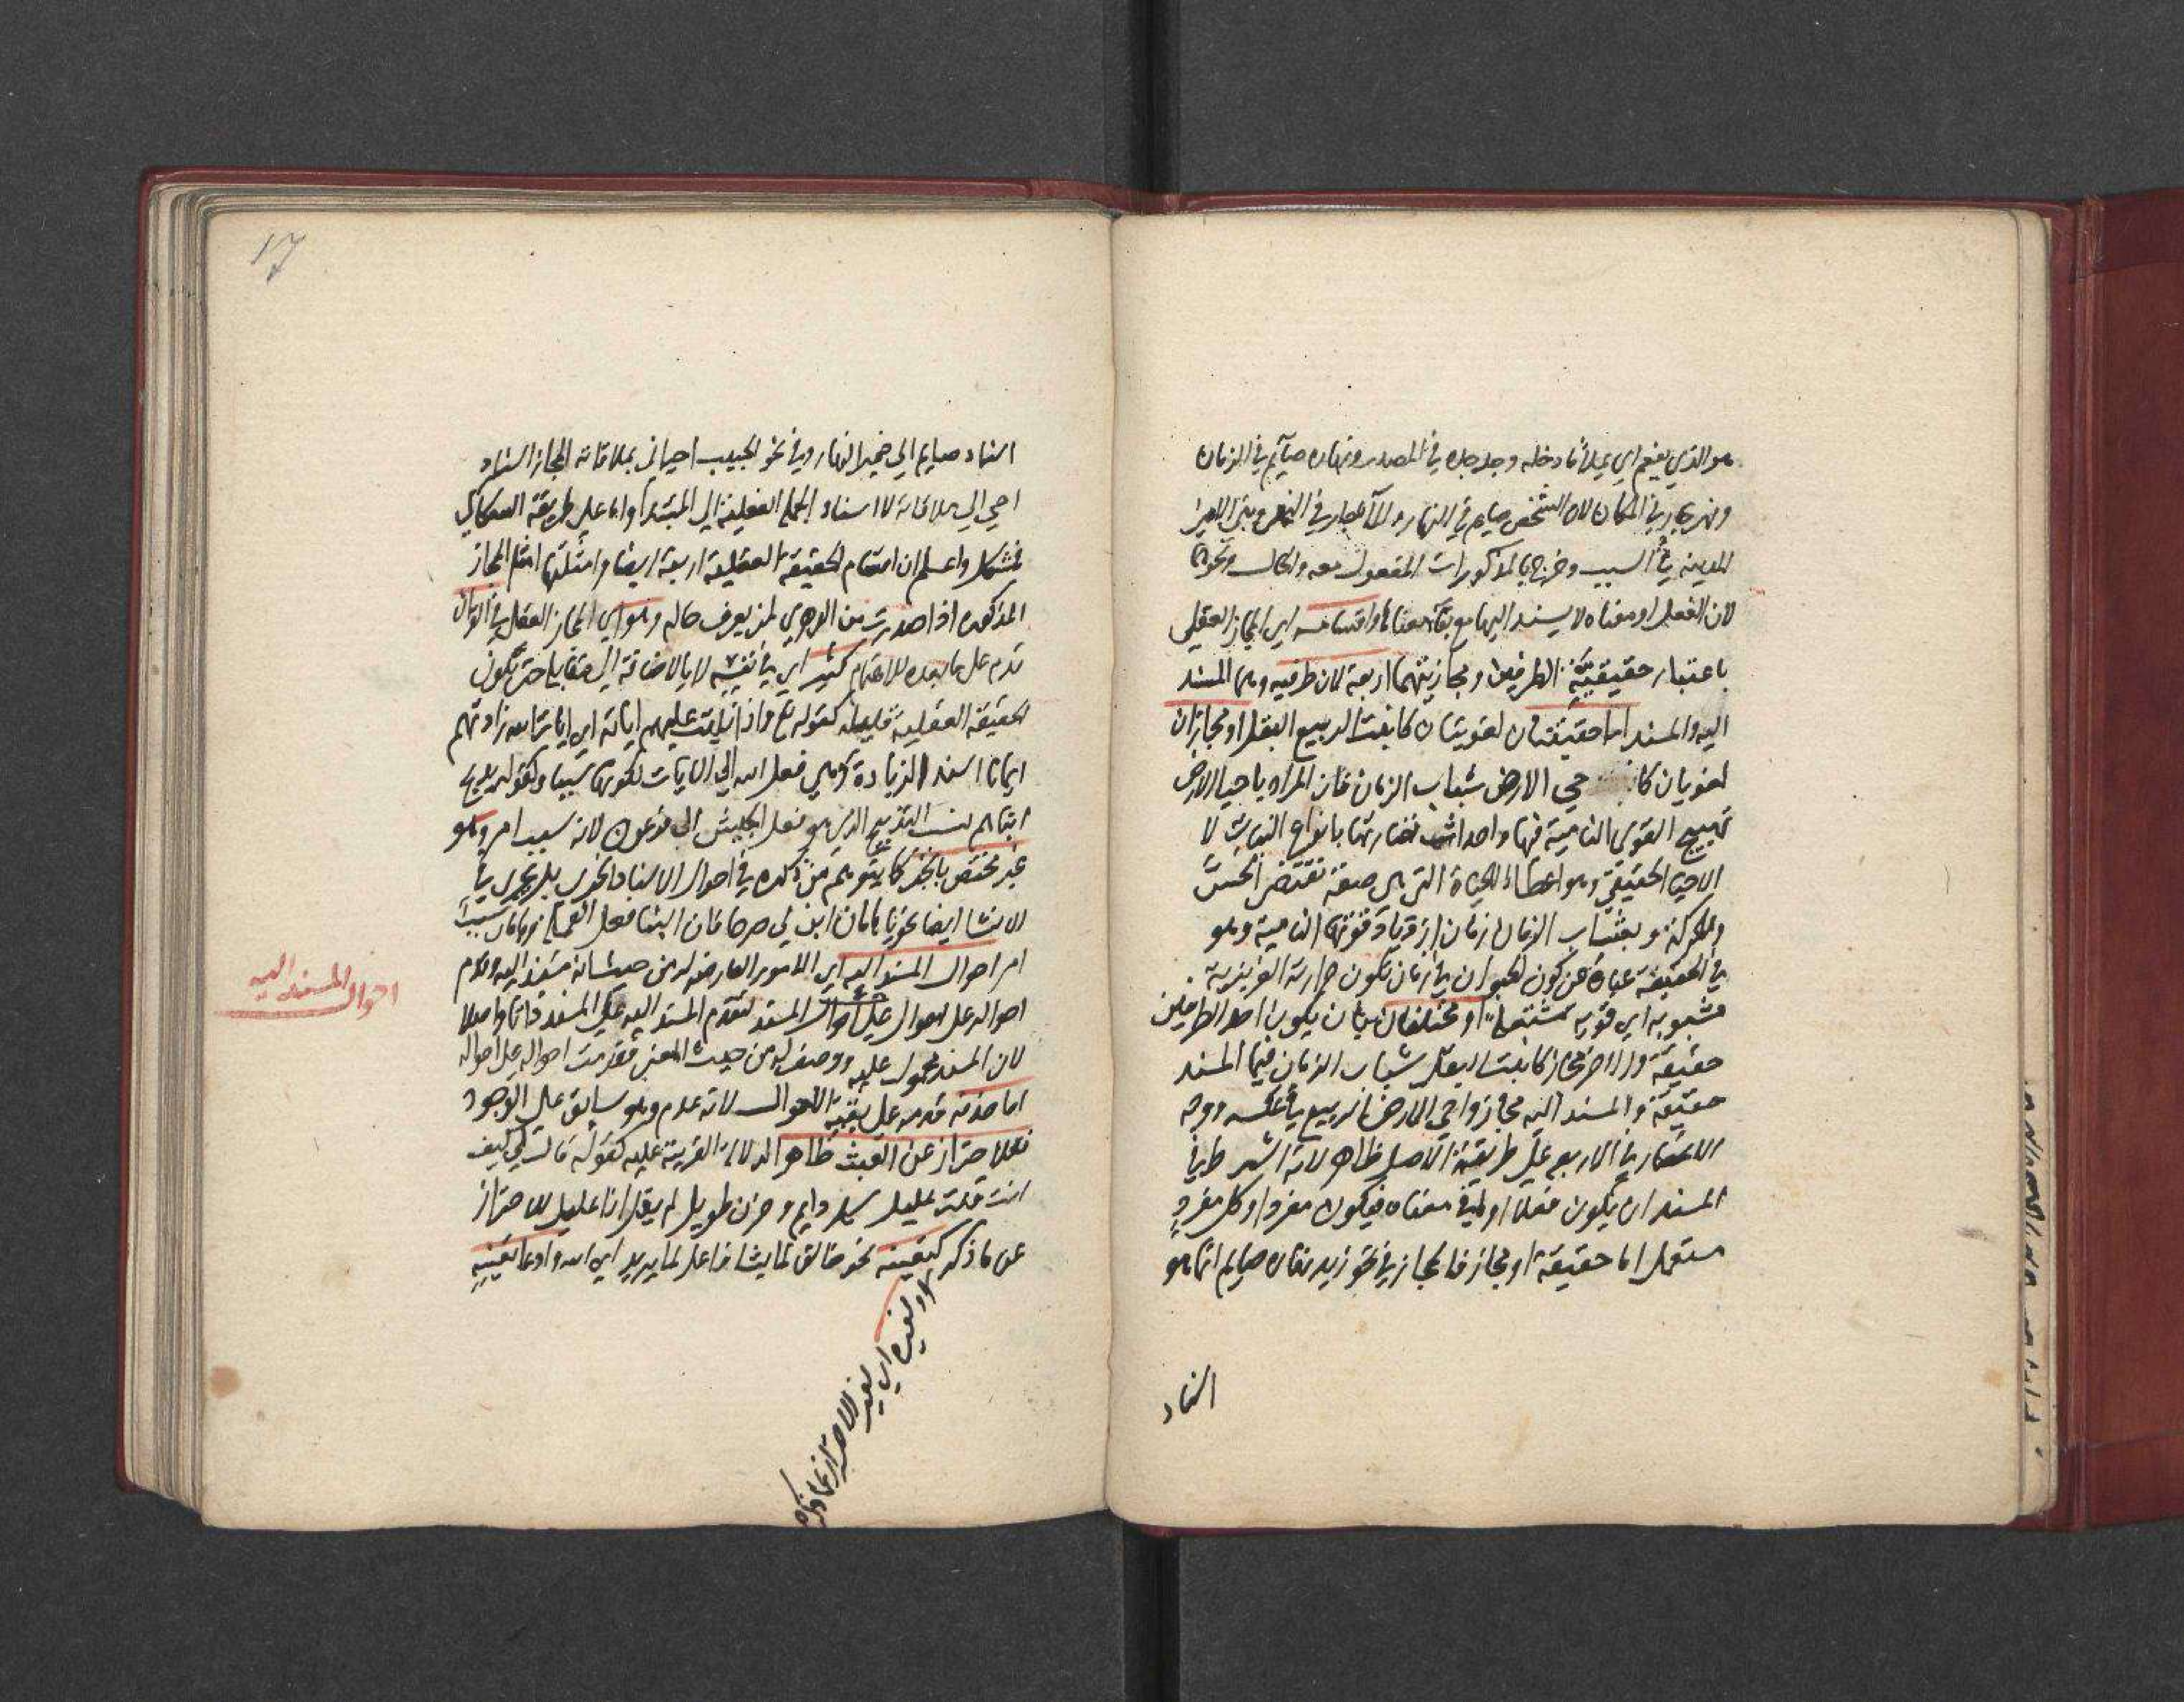 هو الذي يفعم اي يملأ ما دخله وجد جده في المصدر ونهاره صائم في الزمان
ونهر جار في المكان لان الشخص صايم في النهار والما جار في النهر وبنى الامير
المدينه في السبب وخرج بالمذكورات المفعول معه والحال ونحوها
لان الفعل او معناه لا يسند اليها مع بقا معناها واقسامه اي المجاز العقلي
باعتبار حقيقية الطرفين ومجازيتهما اربعة لان طرفيه وهما المسند
اليه والمسند اما حقيقتان لغويتان كانبت الربيع البقل او مجازان
لغويان كا حي الارض شباب الزمان فان المراد باحيا الارض
تهييج القوى النامية فيها واحداث نضارتها بانواع النبات لا
الاحيا الحقيقي وهو اعطاء الحياة التي هي صفة تقتضي الحس
والحركة و بشباب الزمان زمان ازدياد قوتها النامية وهو
في الحقيقة عبارة عن كون الحيوان في زمان تكون حرارته الغريزية
مشبوبه اي قويه مشتعلة او مختلفان بان يكون احد الطرفين
حقيقة والاخر مجاز كانبت البقل شباب الزمان فيما المسند
حقيقة والمسند اليه مجاز واحي الارض الربيع في عكسه ووجه
الانحصار في الاربعه على طريقة الاصل ظاهر لانه اشترط في
المسند ان يكون فعلا او في معناه فيكون مفردا وكل مفرد
مستعمل اما حقيقة او مجاز فالمجاز في نحو زيد نهاره صايم انما هو
اسناد
17
اسناد صايم الى ضمير النهار وفي نحو الحبيب احياني بملاقاته المجاز اسناد
احي الى ملاقاته لا اسناد الجملة الفعلية الى المبتدأ واما على طريقة السكاكي
فمشكل واعلم ان اقسام الحقيقة العقلية اربعة ايضا وامثلتها امثلة المجاز
المذكوره اذا صدرت من الدهري لمن يعرف حاله وهو اي المجاز العقلي في القران
قدم على ما بعده للاهتمام كثير اي في نفسه لا بالاضافة الى مقابله حتى تكون
الحقيقة العقلية قليلة كقوله تع واذا تليت عليهم اياته اي ايات الله زادتهم
ايمانا اسند الزيادة وهي فعل الله الى الايات لكونها سببا وكقوله يذبح
ابناهم نسب التذبيح الذي هو فعل الجيش الى فرعون لانه سبب امر وهو
غير مختص بالخبر كما يتوهم من ذكره في احوال الاسناد الخبري بل يجري في
الانشا ايضا نحو يا هامان ابن لي صرحا فان البنا فعل العملة وهامان سبب
امر احوال المسند اليه اي الامور العارضه له من حيث انه مسند اليه وقدم
احواله على احوال المسند لتقدم المسند اليه على المسند
لان المسند محمول عليه ووصف له من حيث المعنى فقدمت احواله على احواله
اما حذفه قدمه على بقية الاحوال لانه عدم وهو سابق على الوجود
فللاحتراز عن العبث ظاهرا لدلالة القرينة عليه كقوله قال لي كيف
انت قلت عليل سهر دايم وحزن طويل لم يقل انا عليل للاحتراز
عن ما ذكر كتعينه نحو خالق لما يشا فاعل لما يريد اي الله او ادعا تعينه
او لغيره اي لغير الاحتراز مما ذكر
احوال المسند اليه